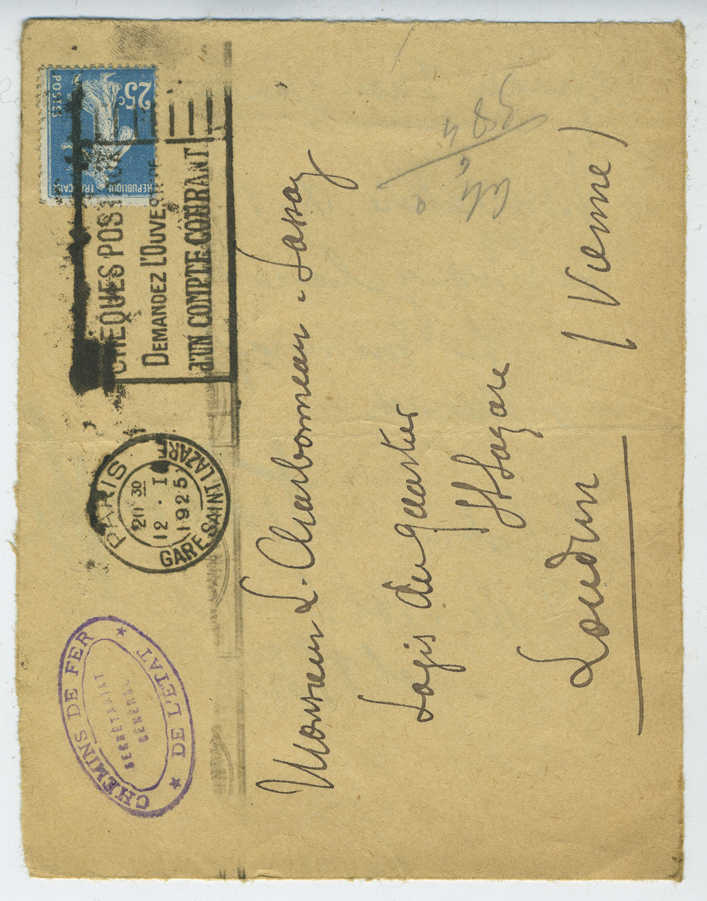 25c
POSTES
REPUBLIQUE FRANÇAISE
CHEQUES POSTAUX
DEMANDEZ L'OUVERTURE
D'UN COMPTE COURANT
PARIS
20 30
12 • I
1925
GARE SAINT LAZARE
CHEMINS DE FER
SECRÉTARIAT
GÉNÉRAL
★ DE L'ETAT ★
Monsieur L. Charbonneau-Lassay
Logis du quartier
St Lazare
Loudun (Vienne)